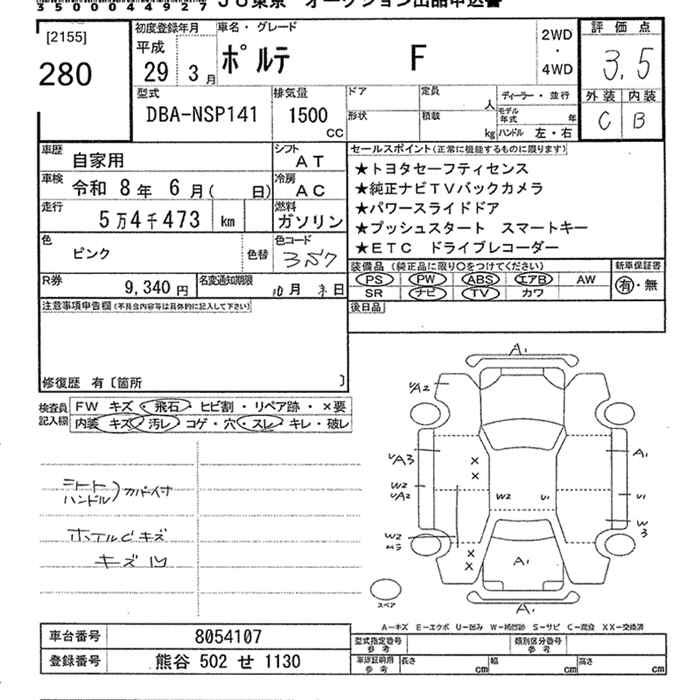 350009444927 JU東京 オークション出品申込書
[2155]
280
初度登録年月
平成
29年 3月
車名・グレード
ポルテ F
2WD
・
4WD
評価点
3.5
外装 内装
C B
型式
DBA-NSP141
排気量
1500
CC
ドア 定員 人
形状 積載 kg
ディーラー・並行
モデル年式 年
ハンドル 左・右
車歴 自家用
シフト AT
車検 令和 8年 6月( 日)
冷房 AC
走行 5万4千473 km
燃料 ガソリン
色 ピンク 色替
色コード 357
R券 9,340円
名変通知期限 10月 末日
セールスポイント(正常に機能するものに限ります)
★トヨタセーフティセンス
★純正ナビTVバックカメラ
★パワースライドドア
★プッシュスタート スマートキー
★ETC ドライブレコーダー
装備品(純正品に限り○をつけてください)
PS PW ABS エアB AW
SR ナビ TV カワ
新車保証書
有・無
後日品
注意事項申告欄(不具合内容等は具体的に記入して下さい)
修復歴 有〔箇所 〕
検査員
記入欄
FW キズ・飛石・ヒビ割・リペア跡・×要
内装 キズ・汚レ・コゲ・穴・スレ・キレ・破レ
シート
ハンドル)カバー付
ホイルCキズ
キズ凹
A1
UA2
UA3
W2
UA2
W2
W2
U1
A1
U1
W3
A1
A1
× × × ×
スペア
A-キズ E-エクボ U-凹み W-補修跡 S-サビ C-腐食 XX-交換済
車台番号 8054107
登録番号 熊谷 502 せ 1130
型式指定番号
参考
類別区分番号
参考
車検証時用
参考
長さ cm 幅 cm 高さ cm